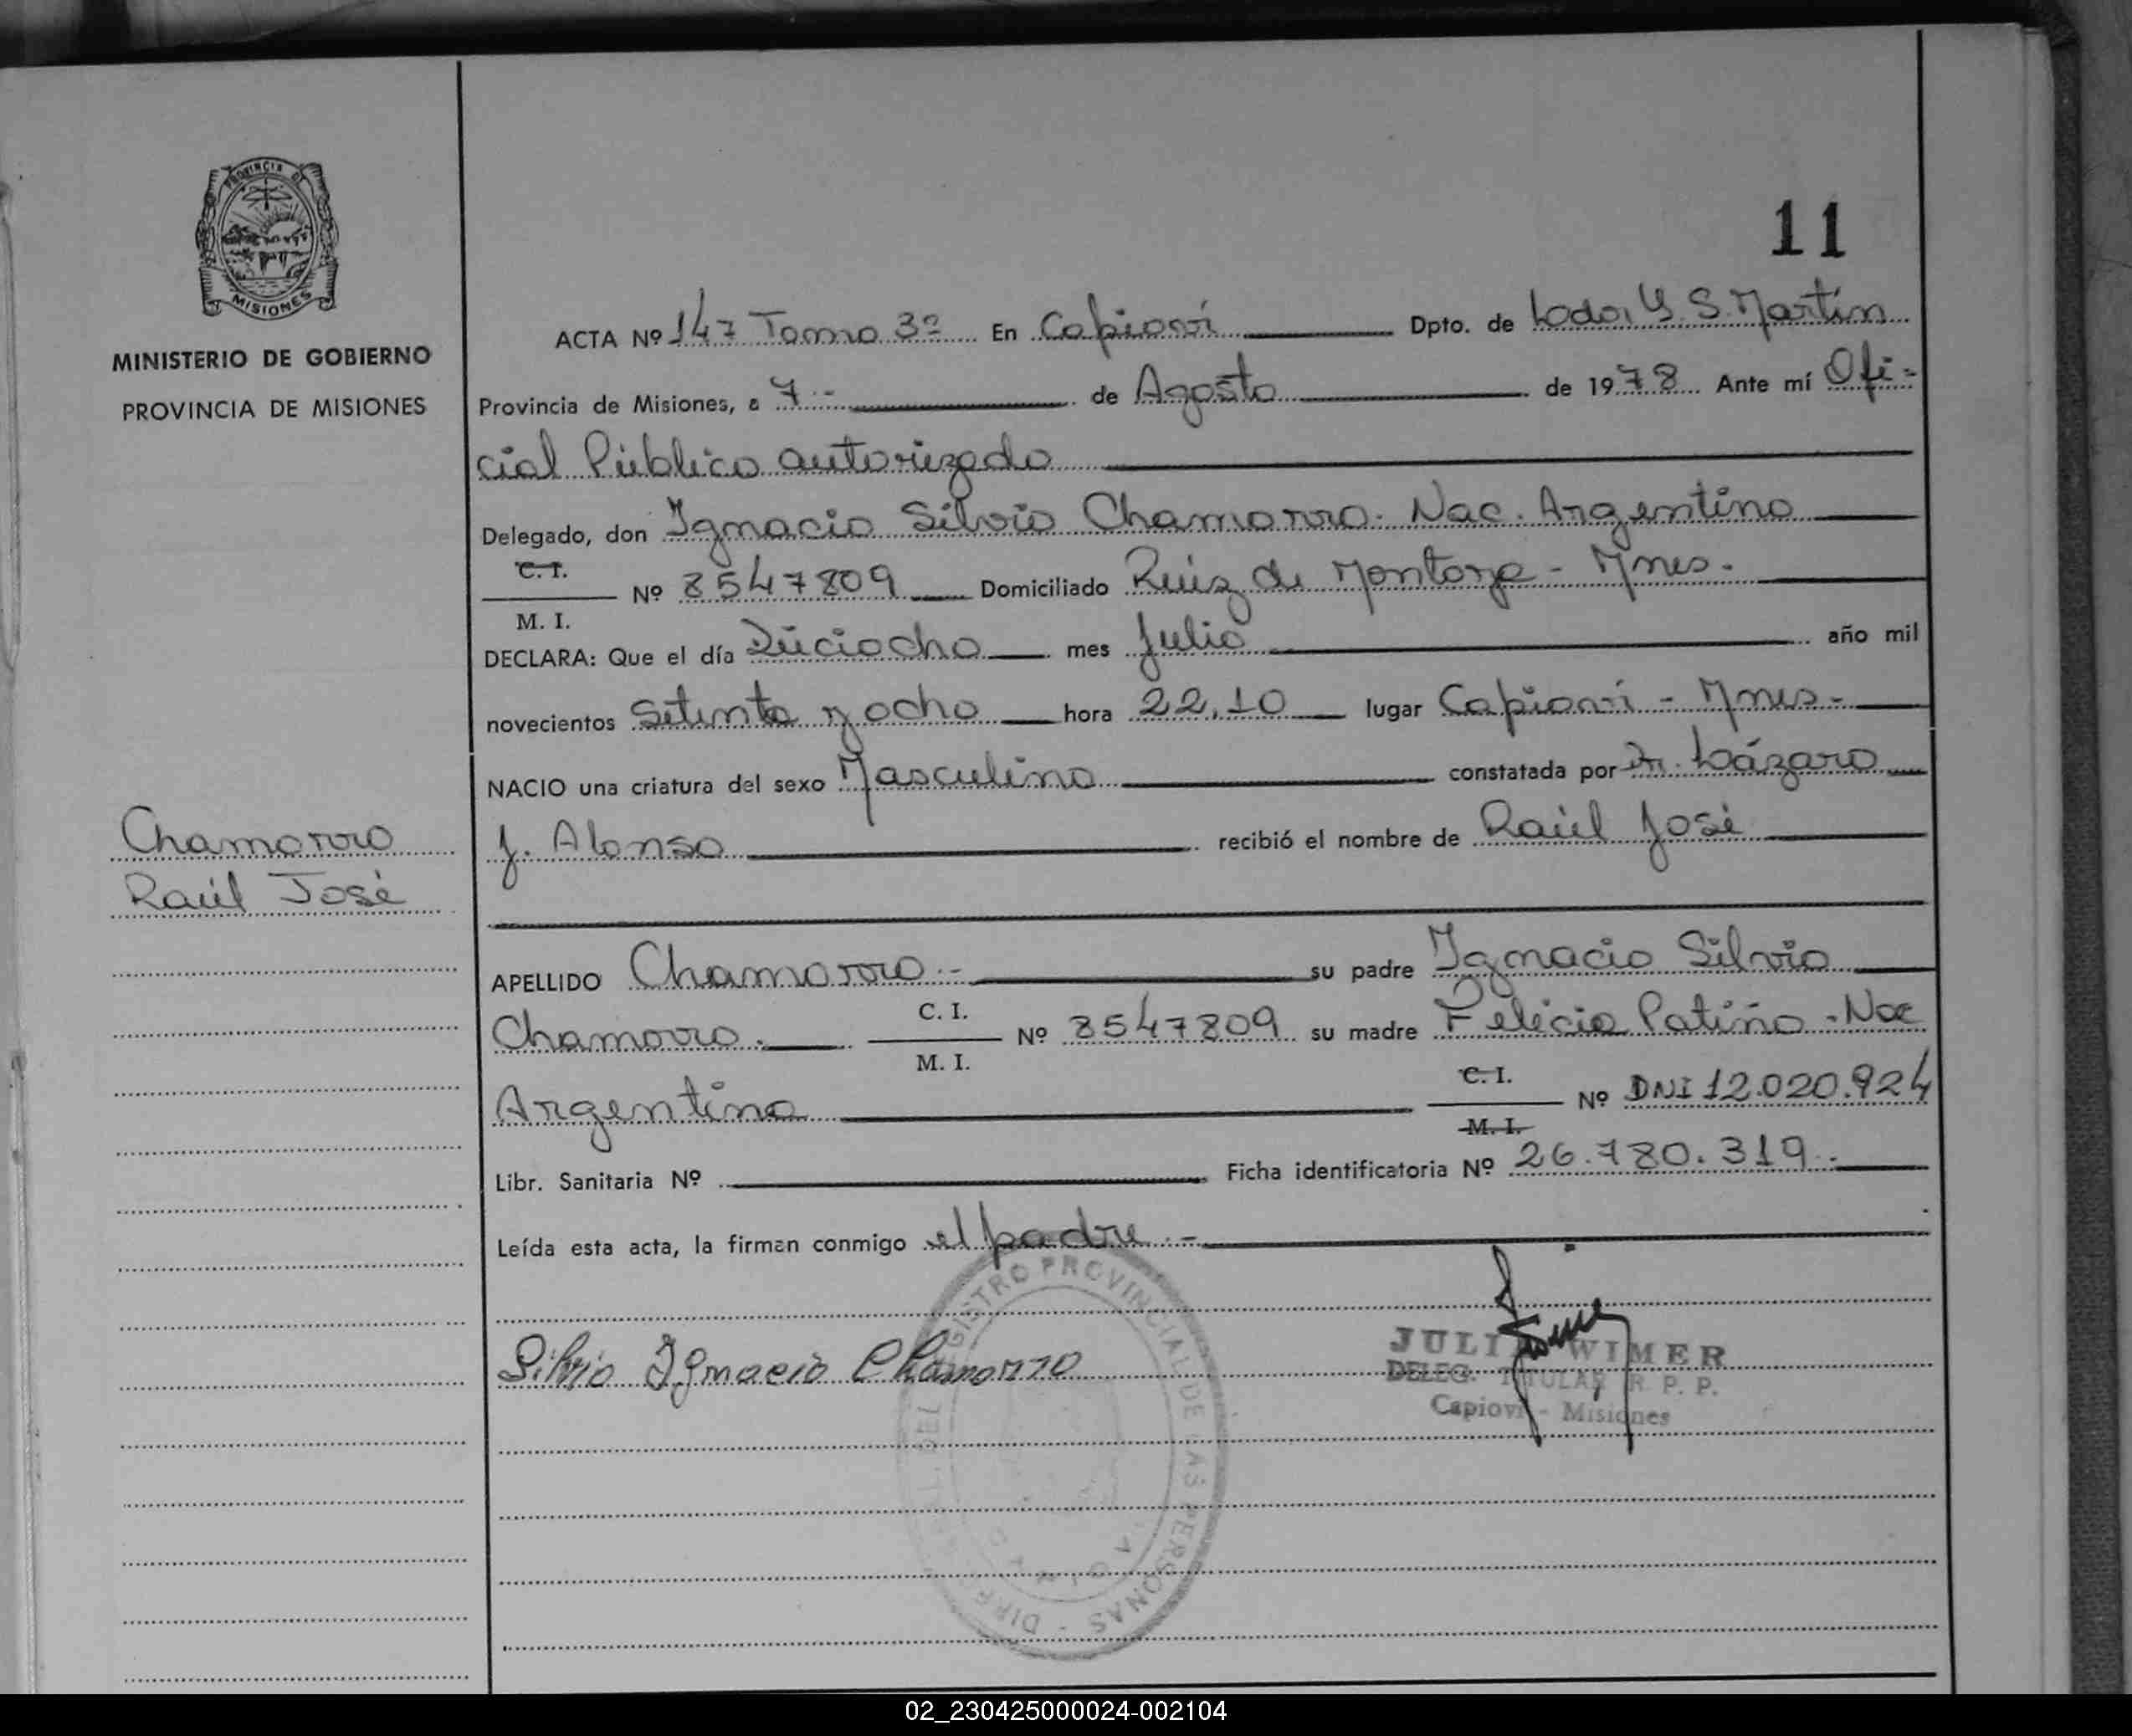 11
PROVINCIA DE
MISIONES
MINISTERIO DE GOBIERNO
PROVINCIA DE MISIONES
ACTA Nº 147 Tomo 3º En Capioví Dpto. de Ldor G. S. Martín
Provincia de Misiones, a 7.- de Agosto de 1978 Ante mí Ofi-
cial Público autorizado
Delegado, don Ignacio Silvio Chamorro. Nac. Argentino
C. I.
Nº 8547809 Domiciliado Ruiz de Montoya - Mnes.
M. I.
DECLARA: Que el día Dieciocho mes Julio año mil
novecientos Setenta y ocho hora 22,10 lugar Capioví - Mnes-
NACIO una criatura del sexo Masculino constatada por Dr. Lázaro
J. Alonso recibió el nombre de Raúl José
Chamorro
Raúl José
APELLIDO Chamorro.- su padre Ignacio Silvio
Chamorro. C. I. Nº 8547809 su madre Felicia Patiño - Nac
M. I.
Argentina C. I. Nº DNI 12.020.924
M. I.
Libr. Sanitaria Nº Ficha identificatoria Nº 26.780.319.
Leída esta acta, la firman conmigo el padre.-
Silvio Ignacio Chamorro
WIMER
DELEG. TITULAR R. P. P.
Capioví - Misiones
REGISTRO PROVINCIAL DE LAS PERSONAS
02_230425000024-002104